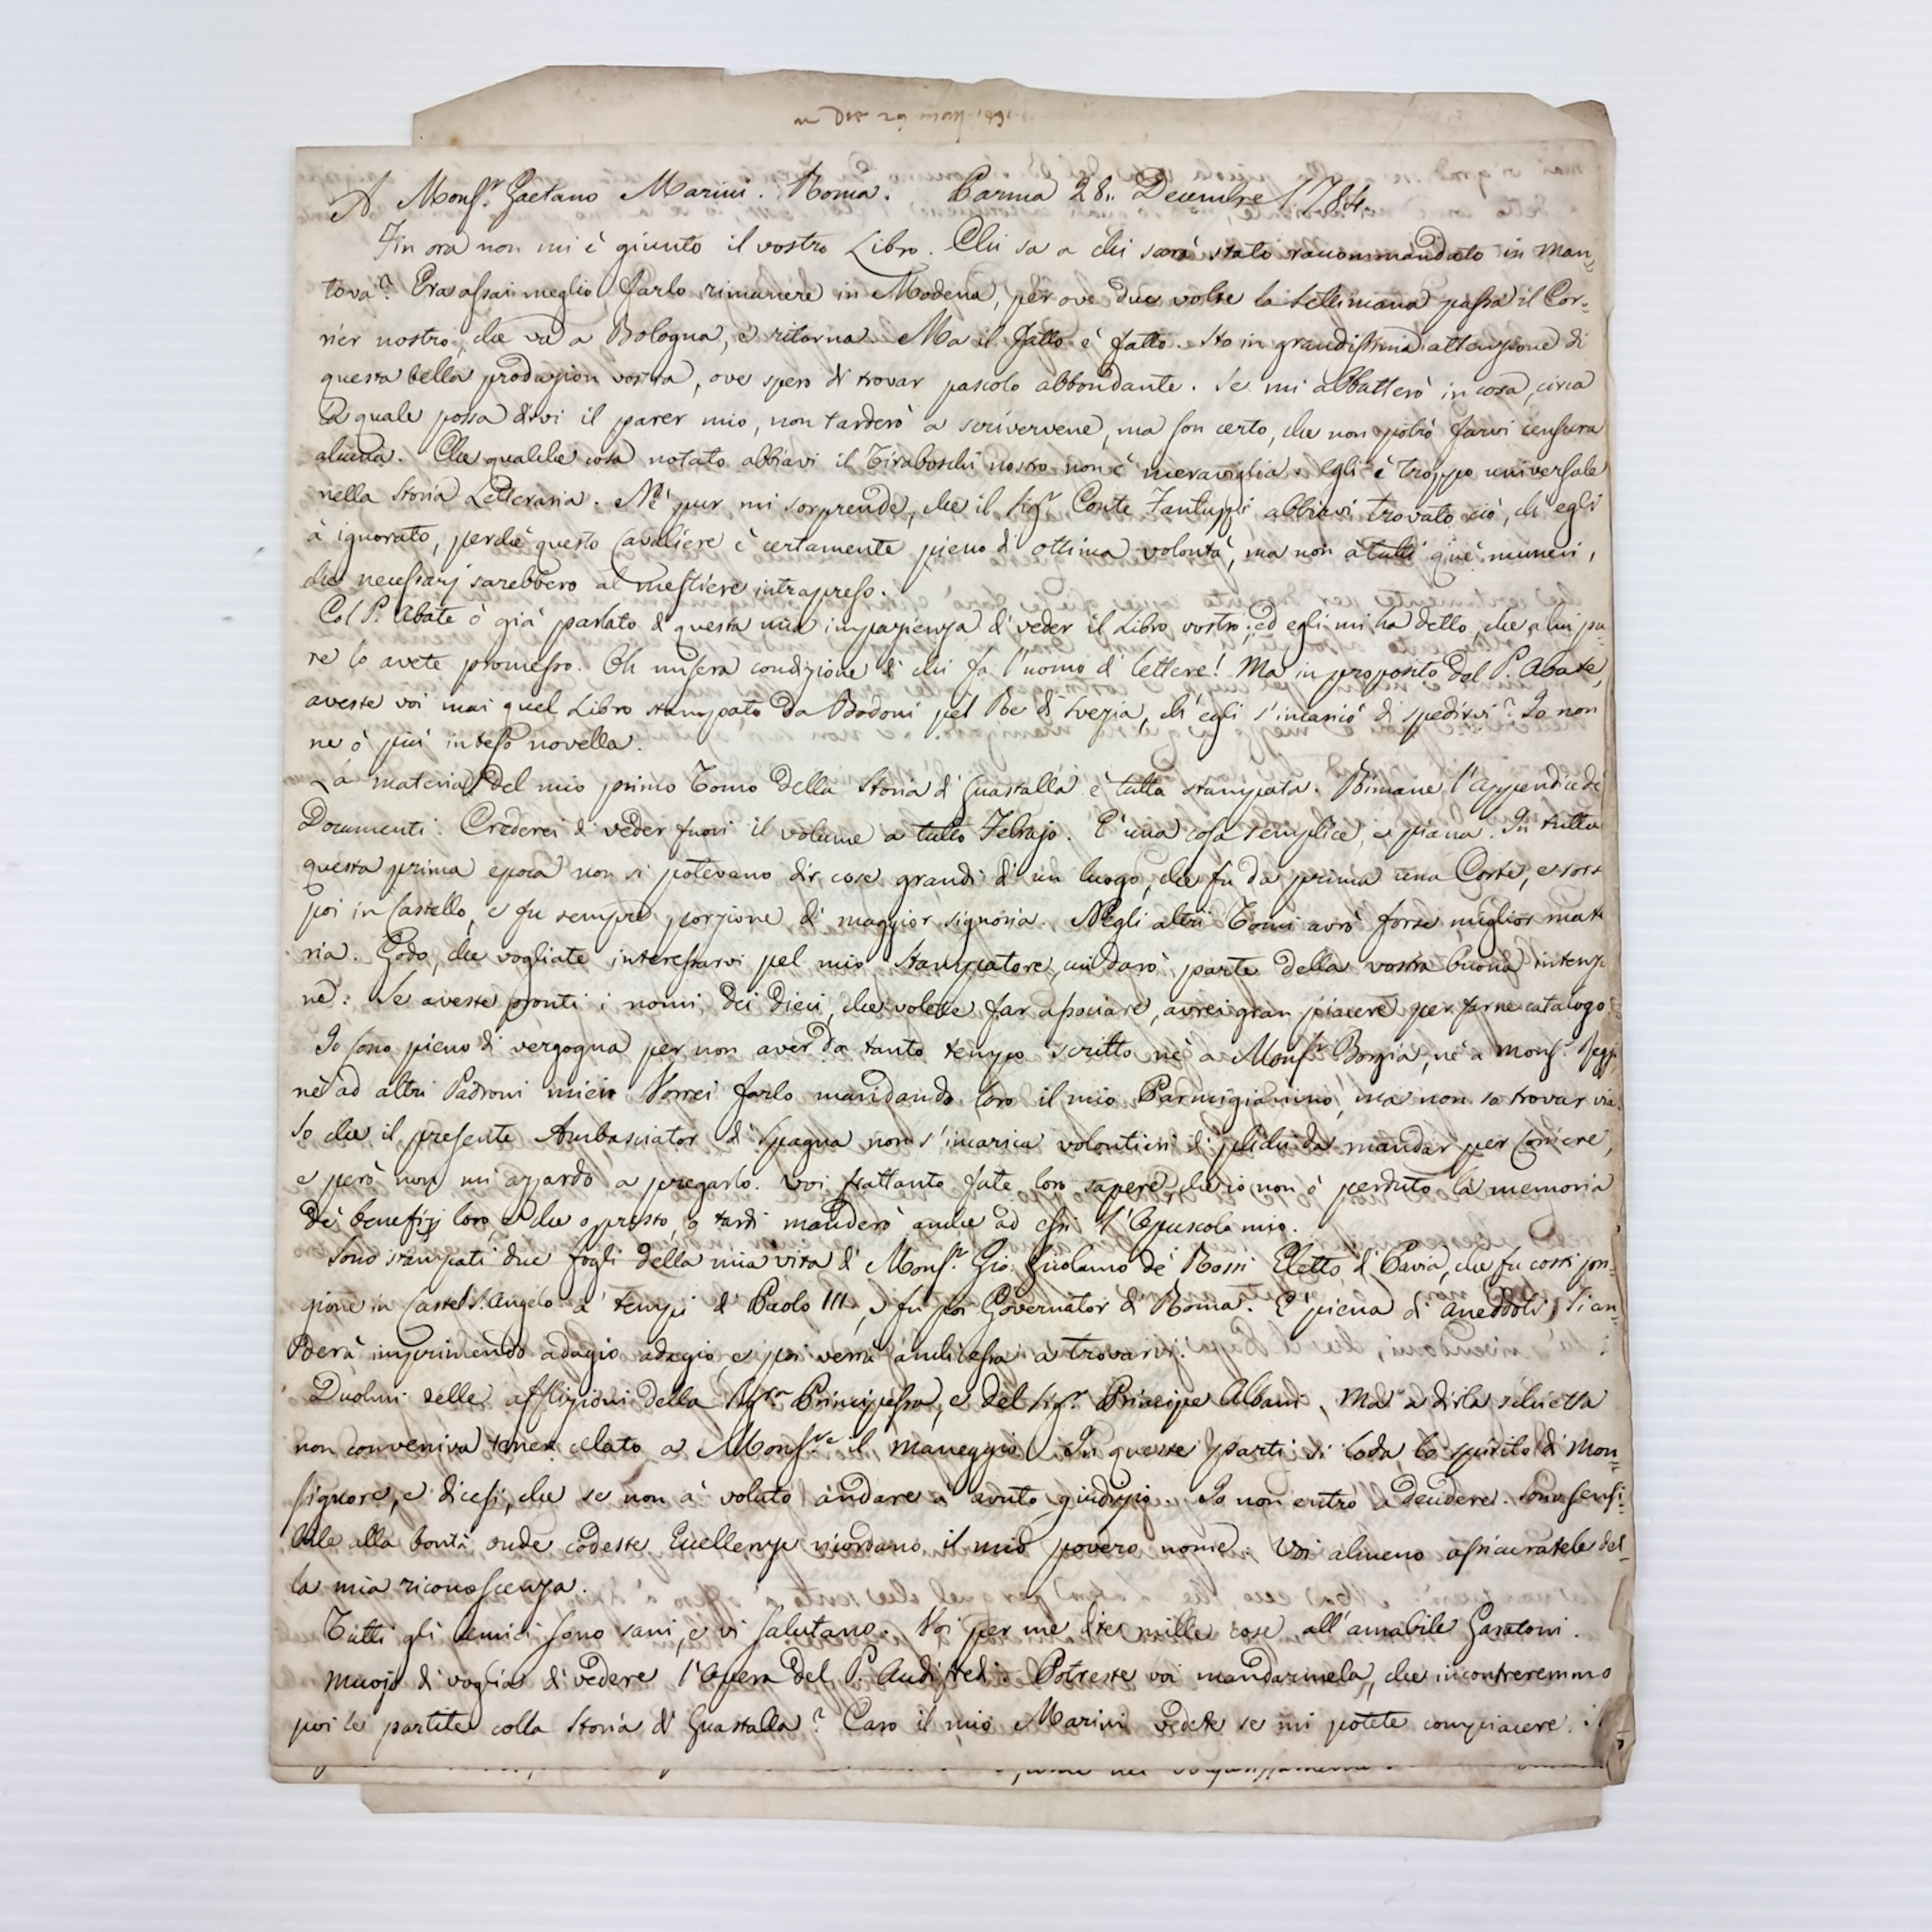 A Monsr. Gaetano Marini. Roma. Parma 28. Decembre 1784.
Fin ora non mi è giunto il vostro Libro. Chi sa a chi sarà stato raccommandato in Man=
tova? Era assai meglio farlo rimanere in Modena, per ove due volte la settimana passa il Cor=
rier nostro, che va a Bologna, e ritorna. Ma il fatto è fatto. Sto in grandissima attenzione di
questa bella produzion vostra, ove spero di trovar pascolo abbondante. Se mi abbatterò in cosa, circa
la quale possa dirvi il parer mio, non tarderò a scrivervene, ma son certo, che non potrò farvi censura
alcuna. Che qualche cosa notato abbiavi il Tiraboschi nostro non è meraviglia. Egli è troppo universale
nella Storia Letteraria. Nè pur mi sorprende, che il Sigr. Conte Fantuzzi abbiavi trovato ciò, ch'egli
à ignorato, perchè questo Cavaliere è certamente pieno di ottima volontà, ma non à tutti que' numeri,
che necessarj sarebbero al mestiere intrapreso.
Col P. Abate ò già parlato di questa mia impazienza di veder il Libro vostro; ed egli mi ha detto, che a lui pu=
re lo avete promesso. Oh misera condizione di chi fa l'uomo di lettere! Ma in proposito del P. Abate,
aveste voi mai quel Libro stampato da Bodoni pel Re di Svezia, ch'egli s'incaricò di spedirvi? Io non
ne ò più inteso novella.
La materia del mio primo Tomo della Storia di Guastalla è tutta stampata. Rimane l'Appendice de'
Documenti. Crederei di veder fuori il volume a tutto Febrajo. È una cosa semplice, e piana. In tutta
questa prima epoca non si potevano dir cose grandi di un luogo, che fu da prima una Corte, e sorse
poi in Castello, e fu sempre porzione di maggior signoria. Negli altri Tomi avrò forse miglior mate
ria. Godo, che vogliate interessarvi pel mio Stampatore, cui darò parte della vostra buona intenzi
ne. Se aveste pronti i nomi dei dieci, che volete far associare, avrei gran piacere per farne catalogo.
Io sono pieno di vergogna per non aver da tanto tempo scritto nè a Monsr. Borgia, nè a Monsr. Reggi
nè ad altri Padroni miei. Vorrei farlo mandando loro il mio Parmigianino, ma non so trovar via.
So che il presente Ambasciator di Spagna non s'incarica volontieri di plichi da mandar per Corriere,
e però non mi azzardo a pregarlo. Voi frattanto fate loro sapere, che io non ò perduto la memoria
de' benefizj loro, e che o presto, o tardi manderò anche ad essi l'Opuscolo mio.
Sono stampati due fogli della mia vita di Monsr. Gio: Girolamo de' Rossi Eletto di Pavia, che fu costì pri=
gione in Castel S. Angelo a' tempi di Paolo III, e fu poi Governator di Roma. È piena di aneddoti, Si an=
derà imprimendo adagio adagio, e poi verrà anch'essa a trovarvi.
Duolmi delle afflizioni della Sigra. Principessa, e del Sigr. Principe Albani. Ma a dirla schietta
non conveniva tener celato a Monsre. il maneggio. In queste parti si loda lo spirito di Mon=
signore, e dicesi, che se non à voluto andare à avuto giudizio. Io non entro a decidere. Sono sensi=
bile alla bontà onde codeste Eccellenze ricordano il mio povero nome. Voi almeno assicuratele del=
la mia riconoscenza.
Tutti gli amici sono sani, e vi salutano. Voi per me dite mille cose all'amabile Garatoni.
Muojo di voglia di vedere l'Opera del P. Audifredi. Potreste voi mandarmela, che incontreremmo
poi le partite colla Storia di Guastalla? Caro il mio Marini vedete se mi potete compiacere.